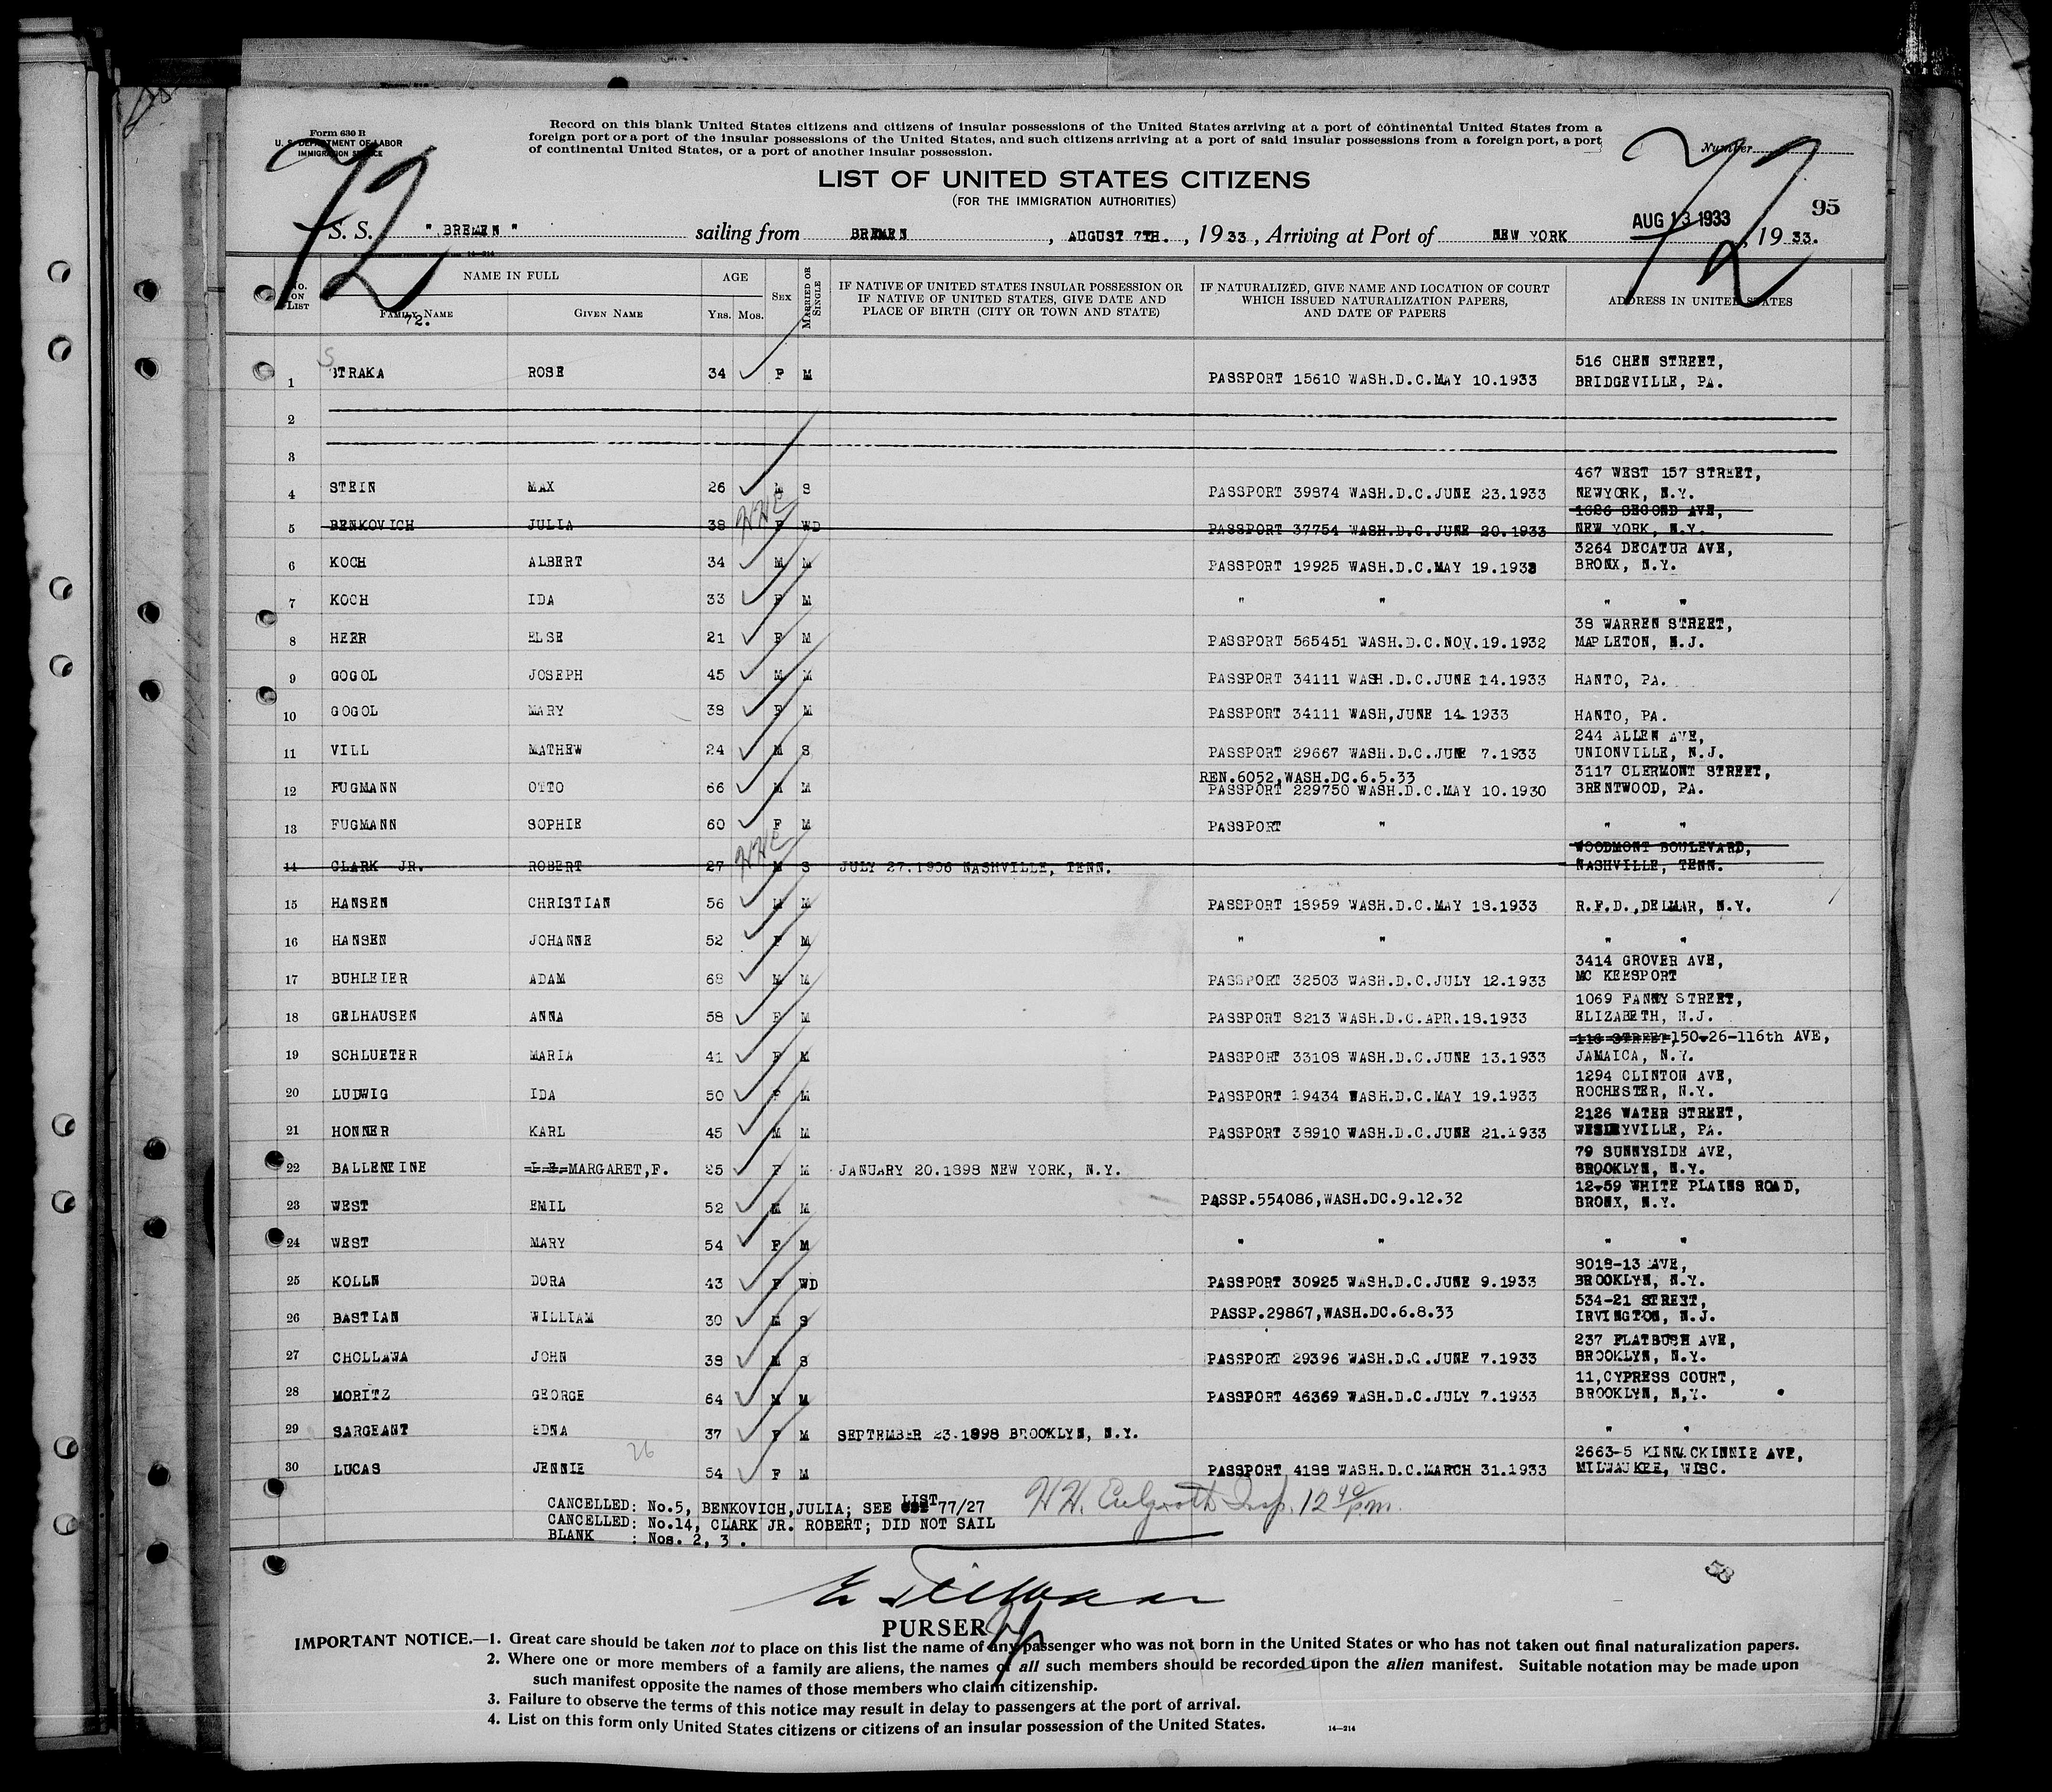 Form 630 B
U. S. DEPARTMENT OF LABOR
IMMIGRATION SERVICE
Record on this blank United States citizens and citizens of insular possessions of the United States arriving at a port of continental United States from a
foreign port or a port of the insular possessions of the United States, and such citizens arriving at a port of said insular possessions from a foreign port, a port
of continental United States, or a port of another insular possession.
Number
72
72
LIST OF UNITED STATES CITIZENS
(FOR THE IMMIGRATION AUTHORITIES)
95
S. S. " BREMEN " sailing from BREMEN , AUGUST 7TH. , 19 33 , Arriving at Port of NEW YORK AUG 13 1933 , 19 33.
14—214
No. ON LIST NAME IN FULL AGE SEX MARRIED OR SINGLE IF NATIVE OF UNITED STATES INSULAR POSSESSION OR IF NATIVE OF UNITED STATES, GIVE DATE AND PLACE OF BIRTH (CITY OR TOWN AND STATE) IF NATURALIZED, GIVE NAME AND LOCATION OF COURT WHICH ISSUED NATURALIZATION PAPERS, AND DATE OF PAPERS ADDRESS IN UNITED STATES
FAMILY NAME GIVEN NAME YRS. MOS.
72.
1 STRAKA ROSE 34 F M PASSPORT 15610 WASH.D.C.MAY 10.1933 516 CHEN STREET, BRIDGEVILLE, PA.
2
3
4 STEIN MAX 26 M S PASSPORT 39874 WASH.D.C.JUNE 23.1933 467 WEST 157 STREET, NEWYORK, N.Y.
5 BENKOVICH JULIA 38 F WD PASSPORT 37754 WASH.D.C.JUNE 20.1933 1626 SECOND AVE, NEW YORK, N.Y.
6 KOCH ALBERT 34 M M PASSPORT 19925 WASH.D.C.MAY 19.1933 3264 DECATUR AVE, BRONX, N.Y.
7 KOCH IDA 33 F M " " " "
8 HEER ELSE 21 F M PASSPORT 565451 WASH.D.C.NOV.19.1932 38 WARREN STREET, MAPLETON, N.J.
9 GOGOL JOSEPH 45 M M PASSPORT 34111 WASH.D.C.JUNE 14.1933 HANTO, PA.
10 GOGOL MARY 38 F M PASSPORT 34111 WASH,JUNE 14 1933 HANTO, PA.
11 VILL MATHEW 24 M S PASSPORT 29667 WASH.D.C.JUNE 7.1933 244 ALLEN AVE, UNIONVILLE, N.J.
12 FUGMANN OTTO 66 M M REN.6052,WASH.DC.6.5.33 PASSPORT 229750 WASH.D.C.MAY 10.1930 3117 CLERMONT STREET, BRENTWOOD, PA.
13 FUGMANN SOPHIE 60 F M PASSPORT " " "
14 CLARK JR. ROBERT 27 M S JULY 27.1906 NASHVILLE, TENN. WOODMONT BOULEVARD, NASHVILLE, TENN.
15 HANSEN CHRISTIAN 56 M M PASSPORT 18959 WASH.D.C.MAY 18.1933 R.F.D.,DELMAR, N.Y.
16 HANSEN JOHANNE 52 F M " " " "
17 BUHLEIER ADAM 68 M M PASSPORT 32503 WASH.D.C.JULY 12.1933 3414 GROVER AVE, MC KEESPORT
18 GELHAUSEN ANNA 58 F M PASSPORT 8213 WASH.D.C.APR.18.1933 1069 FANNY STREET, ELIZABETH, N.J.
19 SCHLUETER MARIA 41 F M PASSPORT 33108 WASH.D.C.JUNE 13.1933 116 STREET,150-26-116th AVE, JAMAICA, N.Y.
20 LUDWIG IDA 50 F M PASSPORT 19434 WASH.D.C.MAY 19.1933 1294 CLINTON AVE, ROCHESTER, N.Y.
21 HONNER KARL 45 M M PASSPORT 38910 WASH.D.C.JUNE 21.1933 2126 WATER STREET, WESLEYVILLE, PA.
22 BALLENEINE MARGARET,F. 35 F M JANUARY 20.1898 NEW YORK, N.Y. 79 SUNNYSIDE AVE, BROOKLYN, N.Y.
23 WEST EMIL 52 M M PASSP.554086,WASH.DC.9.12.32 12-59 WHITE PLAINS ROAD, BRONX, N.Y.
24 WEST MARY 54 F M " " " "
25 KOLLN DORA 43 F WD PASSPORT 30925 WASH.D.C.JUNE 9.1933 8018-13 AVE, BROOKLYN, N.Y.
26 BASTIAN WILLIAM 30 M S PASSP.29867,WASH.DC.6.8.33 534-21 STREET, IRVINGTON, N.J.
27 CHOLLAWA JOHN 38 M S PASSPORT 29396 WASH.D.C.JUNE 7.1933 237 FLATBUSH AVE, BROOKLYN, N.Y.
28 MORITZ GEORGE 64 M M PASSPORT 46369 WASH.D.C.JULY 7.1933 11,CYPRESS COURT, BROOKLYN, N,Y.
29 SARGEANT EDNA 37 F M SEPTEMBER 23.1898 BROOKLYN, N.Y. " "
30 LUCAS JENNIE 54 F M PASSPORT 4188 WASH.D.C.MARCH 31.1933 2663-5 KINNICKINNIE AVE, MILWAUKEE, WISC.
26
CANCELLED: No.5, BENKOVICH,JULIA; SEE LIST 77/27
CANCELLED: No.14, CLARK JR. ROBERT; DID NOT SAIL
BLANK : Nos. 2, 3 .
Insp. 12 40 pm.
58
PURSER
IMPORTANT NOTICE.—1. Great care should be taken not to place on this list the name of any passenger who was not born in the United States or who has not taken out final naturalization papers.
2. Where one or more members of a family are aliens, the names of all such members should be recorded upon the alien manifest. Suitable notation may be made upon
such manifest opposite the names of those members who claim citizenship.
3. Failure to observe the terms of this notice may result in delay to passengers at the port of arrival.
4. List on this form only United States citizens or citizens of an insular possession of the United States.
14—214